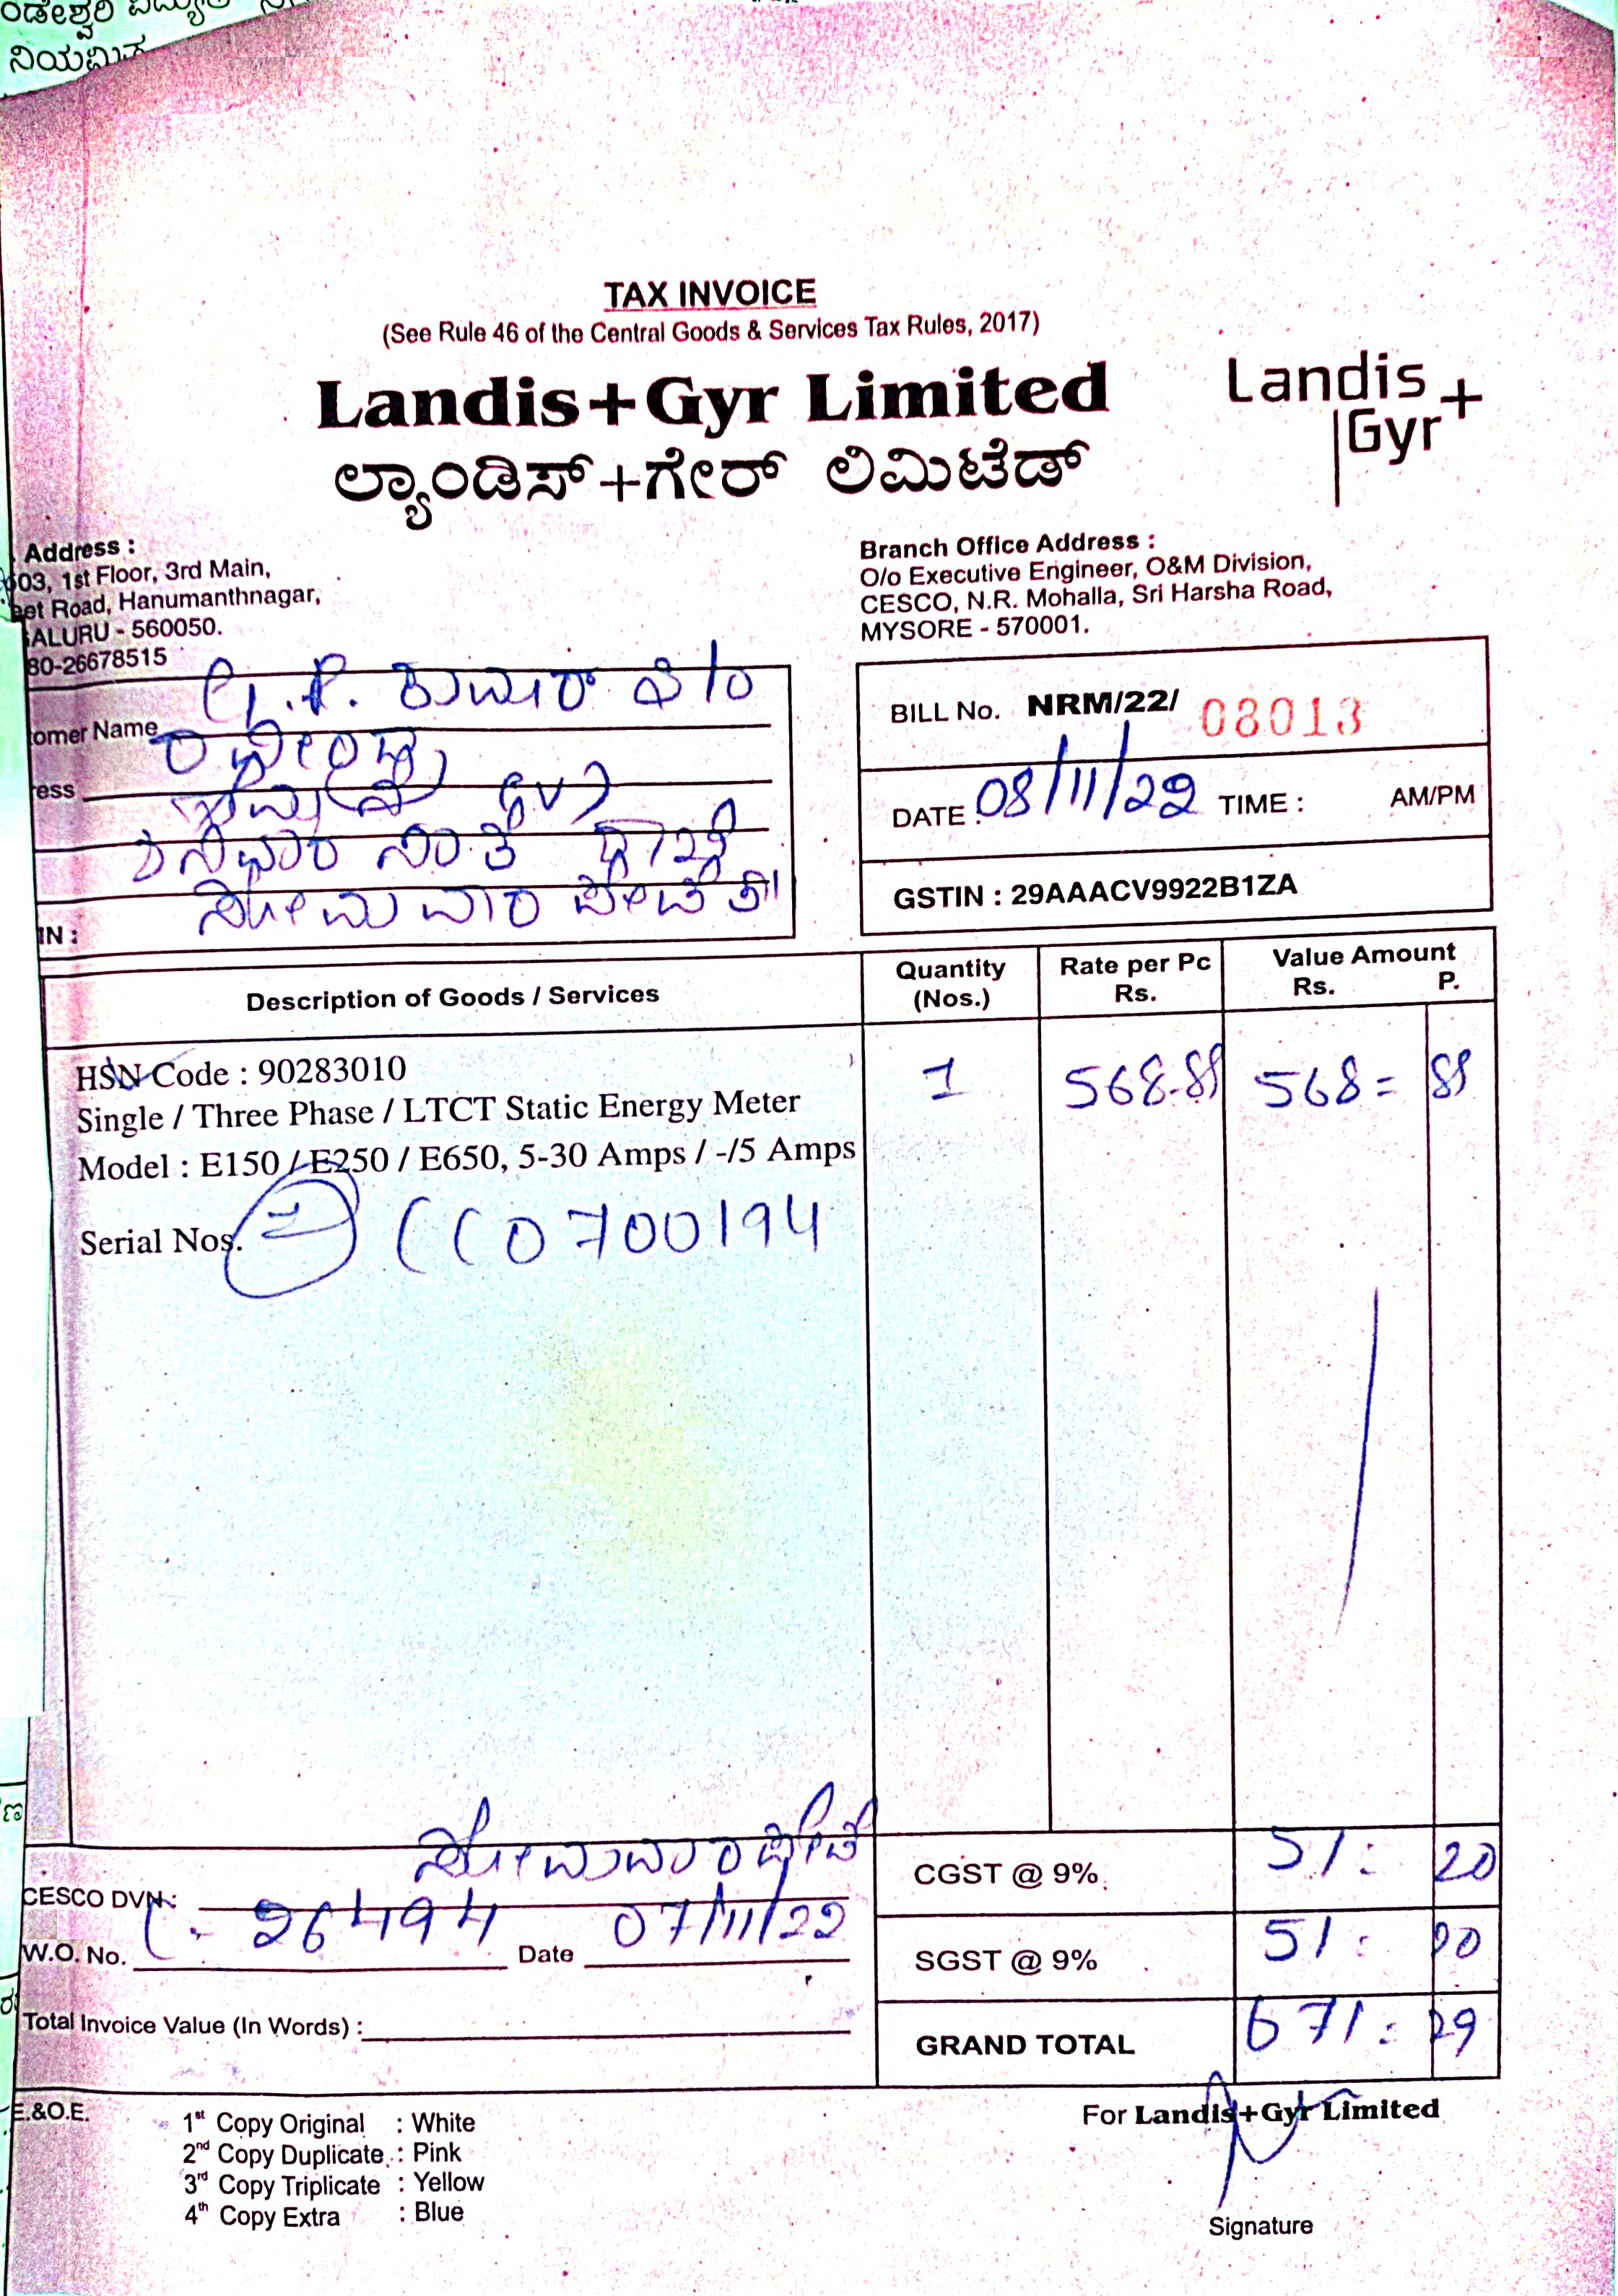 ನಿಯಮಿತ
TAX INVOICE
(See Rule 46 of the Central Goods & Services Tax Rules, 2017)
Landis+Gyr Limited
Landis
Gyr+
ಲ್ಯಾಂಡಿಸ್+ಗೇರ್ ಲಿಮಿಟೆಡ್
Address :
603, 1st Floor, 3rd Main,
eet Road, Hanumanthnagar,
ALURU - 560050.
80-26678515
Branch Office Address :
O/o Executive Engineer, O&M Division,
CESCO, N.R. Mohalla, Sri Harsha Road,
MYSORE - 570001.
omer Name ಕುಮಾರ್
ess
ಶನಿವಾರ ಸಂತೆ
ಸೋಮವಾರ ಪೇಟೆ ತಾ||
IN :
BILL No. NRM/22/ 08013
DATE : 08/11/22 TIME : AM/PM
GSTIN : 29AAACV9922B1ZA
Description of Goods / Services
Quantity (Nos.)
Rate per Pc Rs.
Value Amount
Rs. P.
HSN Code : 90283010
1 568.89 568= 89
Single / Three Phase / LTCT Static Energy Meter
Model : E150 / E250 / E650, 5-30 Amps / -/5 Amps
Serial Nos. CC0700194
ಸೋಮವಾರ ಪೇಟೆ
CESCO DVN :
W.O. No. 26494 Date 07/11/22
Total Invoice Value (In Words) :
CGST @ 9% 51: 20
SGST @ 9% 51: 20
GRAND TOTAL 671: 29
E.&O.E.
1st Copy Original : White
2nd Copy Duplicate : Pink
3rd Copy Triplicate : Yellow
4th Copy Extra : Blue
For Landis+Gyr Limited
Signature